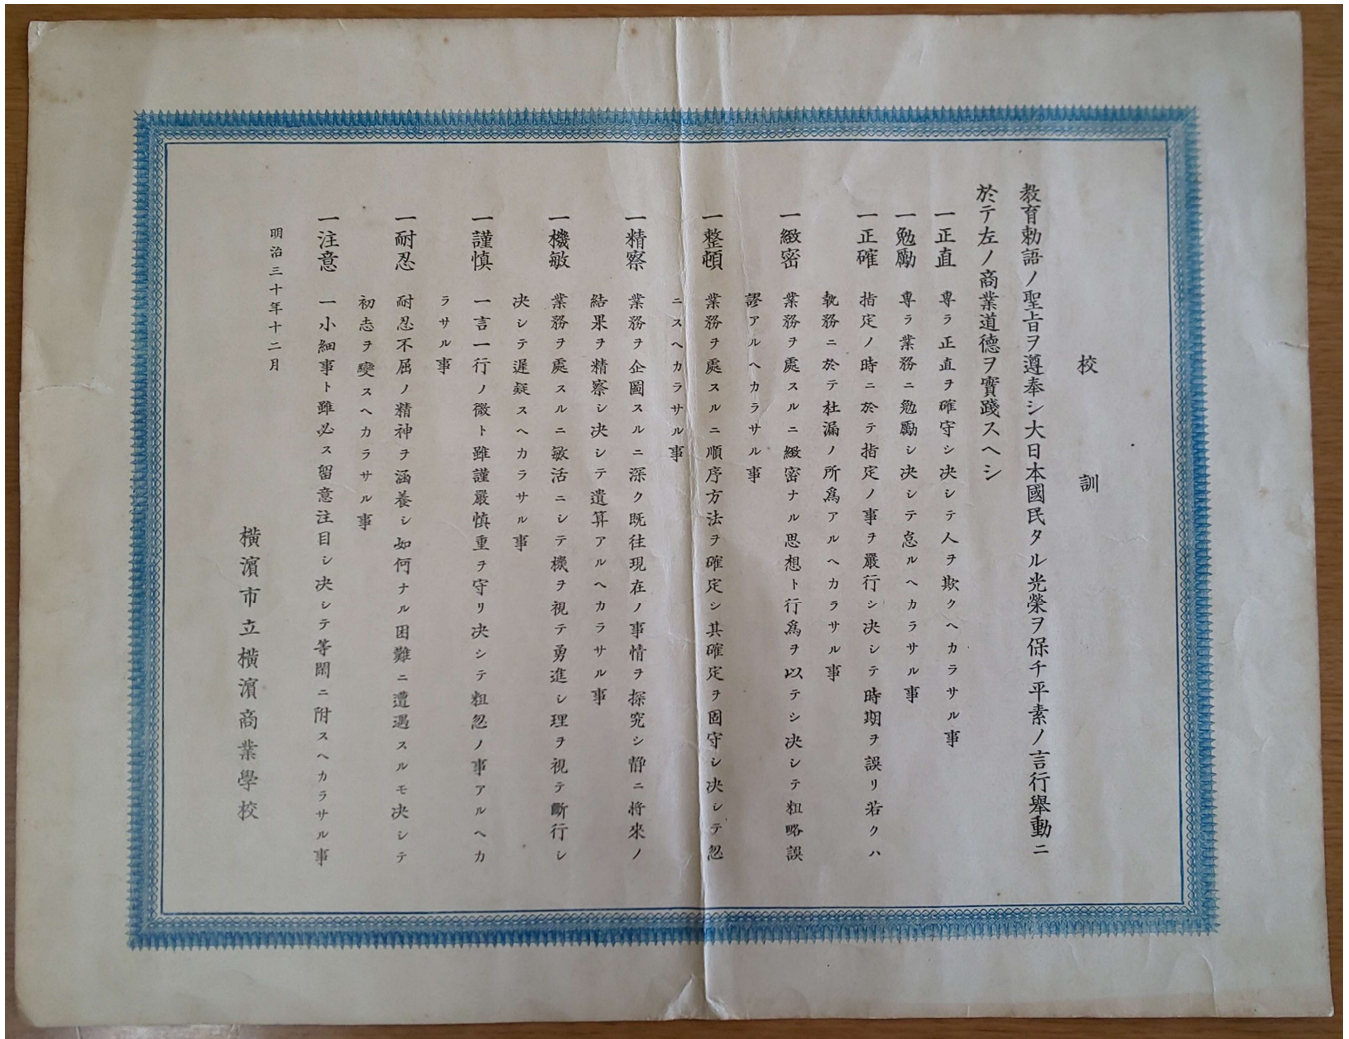 校訓
教育勅語ノ聖旨ヲ遵奉シ大日本國民タル光榮ヲ保チ平素ノ言行擧動ニ
於テ左ノ商業道德ヲ實踐スヘシ
一正直 專ラ正直ヲ確守シ决シテ人ヲ欺クヘカラサル事
一勉勵 專ラ業務ニ勉勵シ决シテ怠ルヘカラサル事
一正確 指定ノ時ニ於テ指定ノ事ヲ嚴行シ决シテ時期ヲ誤リ若クハ
執務ニ於テ杜漏ノ所爲アルヘカラサル事
一緻密 業務ヲ處スルニ緻密ナル思想ト行爲ヲ以テシ决シテ粗略誤
謬アルヘカラサル事
一整頓 業務ヲ處スルニ順序方法ヲ確定シ其確定ヲ固守シ决シテ忽
ニスヘカラサル事
一精察 業務ヲ企圖スルニ深ク既往現在ノ事情ヲ探究シ靜ニ將來ノ
結果ヲ精察シ决シテ遺算アルヘカラサル事
一機敏 業務ヲ處スルニ敏活ニシテ機ヲ視テ勇進シ理ヲ視テ斷行シ
决シテ遲疑スヘカラサル事
一謹慎 一言一行ノ微ト雖謹嚴慎重ヲ守リ决シテ粗忽ノ事アルヘカ
ラサル事
一耐忍 耐忍不屈ノ精神ヲ涵養シ如何ナル困難ニ遭遇スルモ决シテ
初志ヲ變スヘカラサル事
一注意 一小細事ト雖必ス留意注目シ决シテ等閑ニ附スヘカラサル事
明治三十年十二月
橫濱市立橫濱商業學校